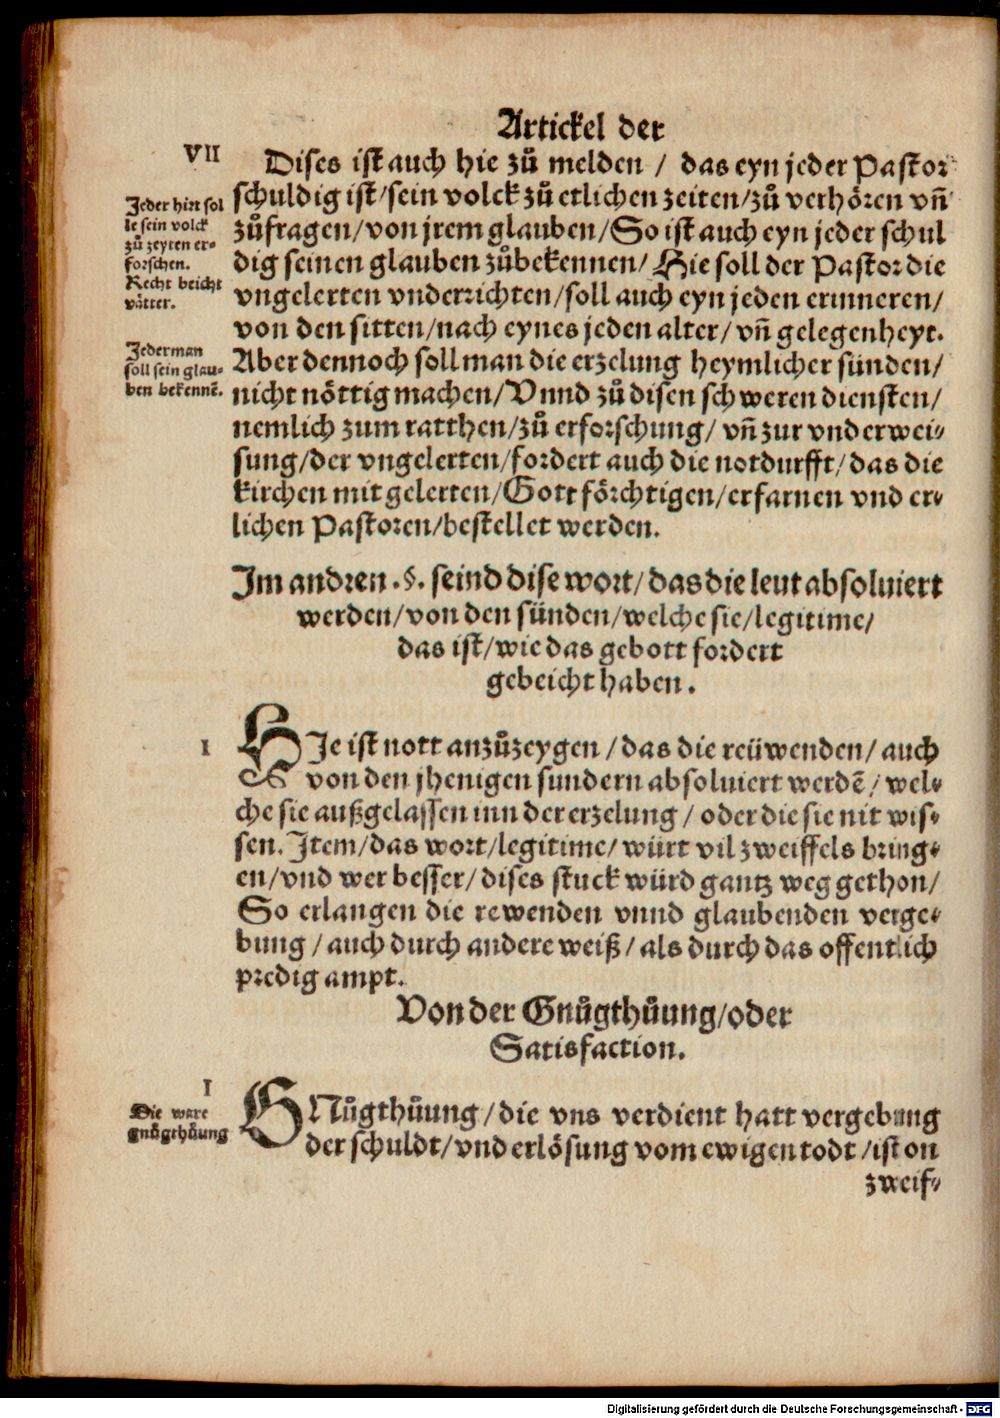 Artickel der
VII
Dises ist auch hie zů melden / das eyn jeder Pastor
schuldig ist/sein volck zů etlichen zeiten/zů verhören vñ
zůfragen/von jrem glauben/So ist auch eyn jeder schul
dig seinen glauben zůbekennen/Hie soll der Pastor die
vngelerten vnderrichten/soll auch eyn jeden erinneren/
von den sitten/nach eynes jeden alter/vñ gelegenheyt.
Aber dennoch soll man die erzelung heymlicher sünden/
nicht nöttig machen/Vnnd zů disen schweren diensten/
nemlich zum ratthen/zů erforschung/vñ zur vnderwei-
sung/der vngelerten/fordert auch die notdurfft/das die
kirchen mit gelerten/Gott förchtigen/erfarnen vnd er-
lichen Pastoren/bestellet werden.
Jeder hirt sol
le sein volck
zů zeyten er-
forschen.
Recht beicht
vätter.
Jederman
soll sein glau-
ben bekennẽ.
Im andren .§. seind dise wort/das die leut absoluiert
werden/von den sünden/welche sie/legitime/
das ist/wie das gebott fordert
gebeicht haben.
I
HJe ist nott anzůzeygen/das die reüwenden/auch
von den jhenigen sundern absoluiert werdẽ/wel-
che sie außgelassen inn der erzelung/oder die sie nit wis-
sen. Item/das wort/legitime/würt vil zweiffels bring-
en/vnd wer besser/dises stuck würd gantz weg gethon/
So erlangen die rewenden vnnd glaubenden verge-
bung/auch durch andere weiß/als durch das offentlich
predig ampt.
Von der Gnůgthůung/oder
Satisfaction.
I
Die ware
gnůgthůung
GNůgthůung/die vns verdient hatt vergebung
der schuldt/vnd erlösung vom ewigen todt/ist on
zweif-
Digitalisierung gefördert durch die Deutsche Forschungsgemeinschaft - DFG